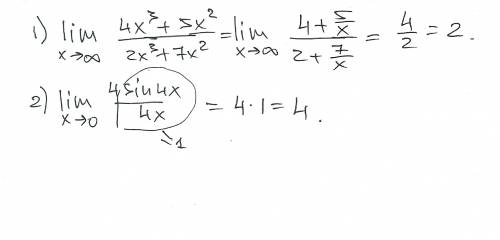 1) lim x→∞ (4x³ + 5x²)/(2x³ + 7x²) = lim x→∞ (4 + 5/x)/(2 + 7/x) = 4/2 = 2.
2) lim x→0 4 sin 4x/4x = 4·1 = 4.
=1